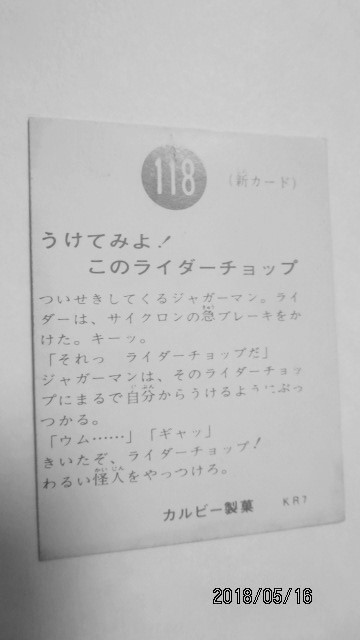 118
(新カード)
うけてみよ!
このライダーチョップ
ついせきしてくるジャガーマン。ライ
ダーは、サイクロンの急ブレーキをか
けた。キーッ。
「それっ ライダーチョップだ」
ジャガーマンは、そのライダーチョッ
プにまるで自分からうけるようにぶっ
つかる。
「ウム……」「ギャッ」
きいたぞ、ライダーチョップ!
わるい怪人をやっつけろ。
カルビー製菓 KR7
2018/05/16